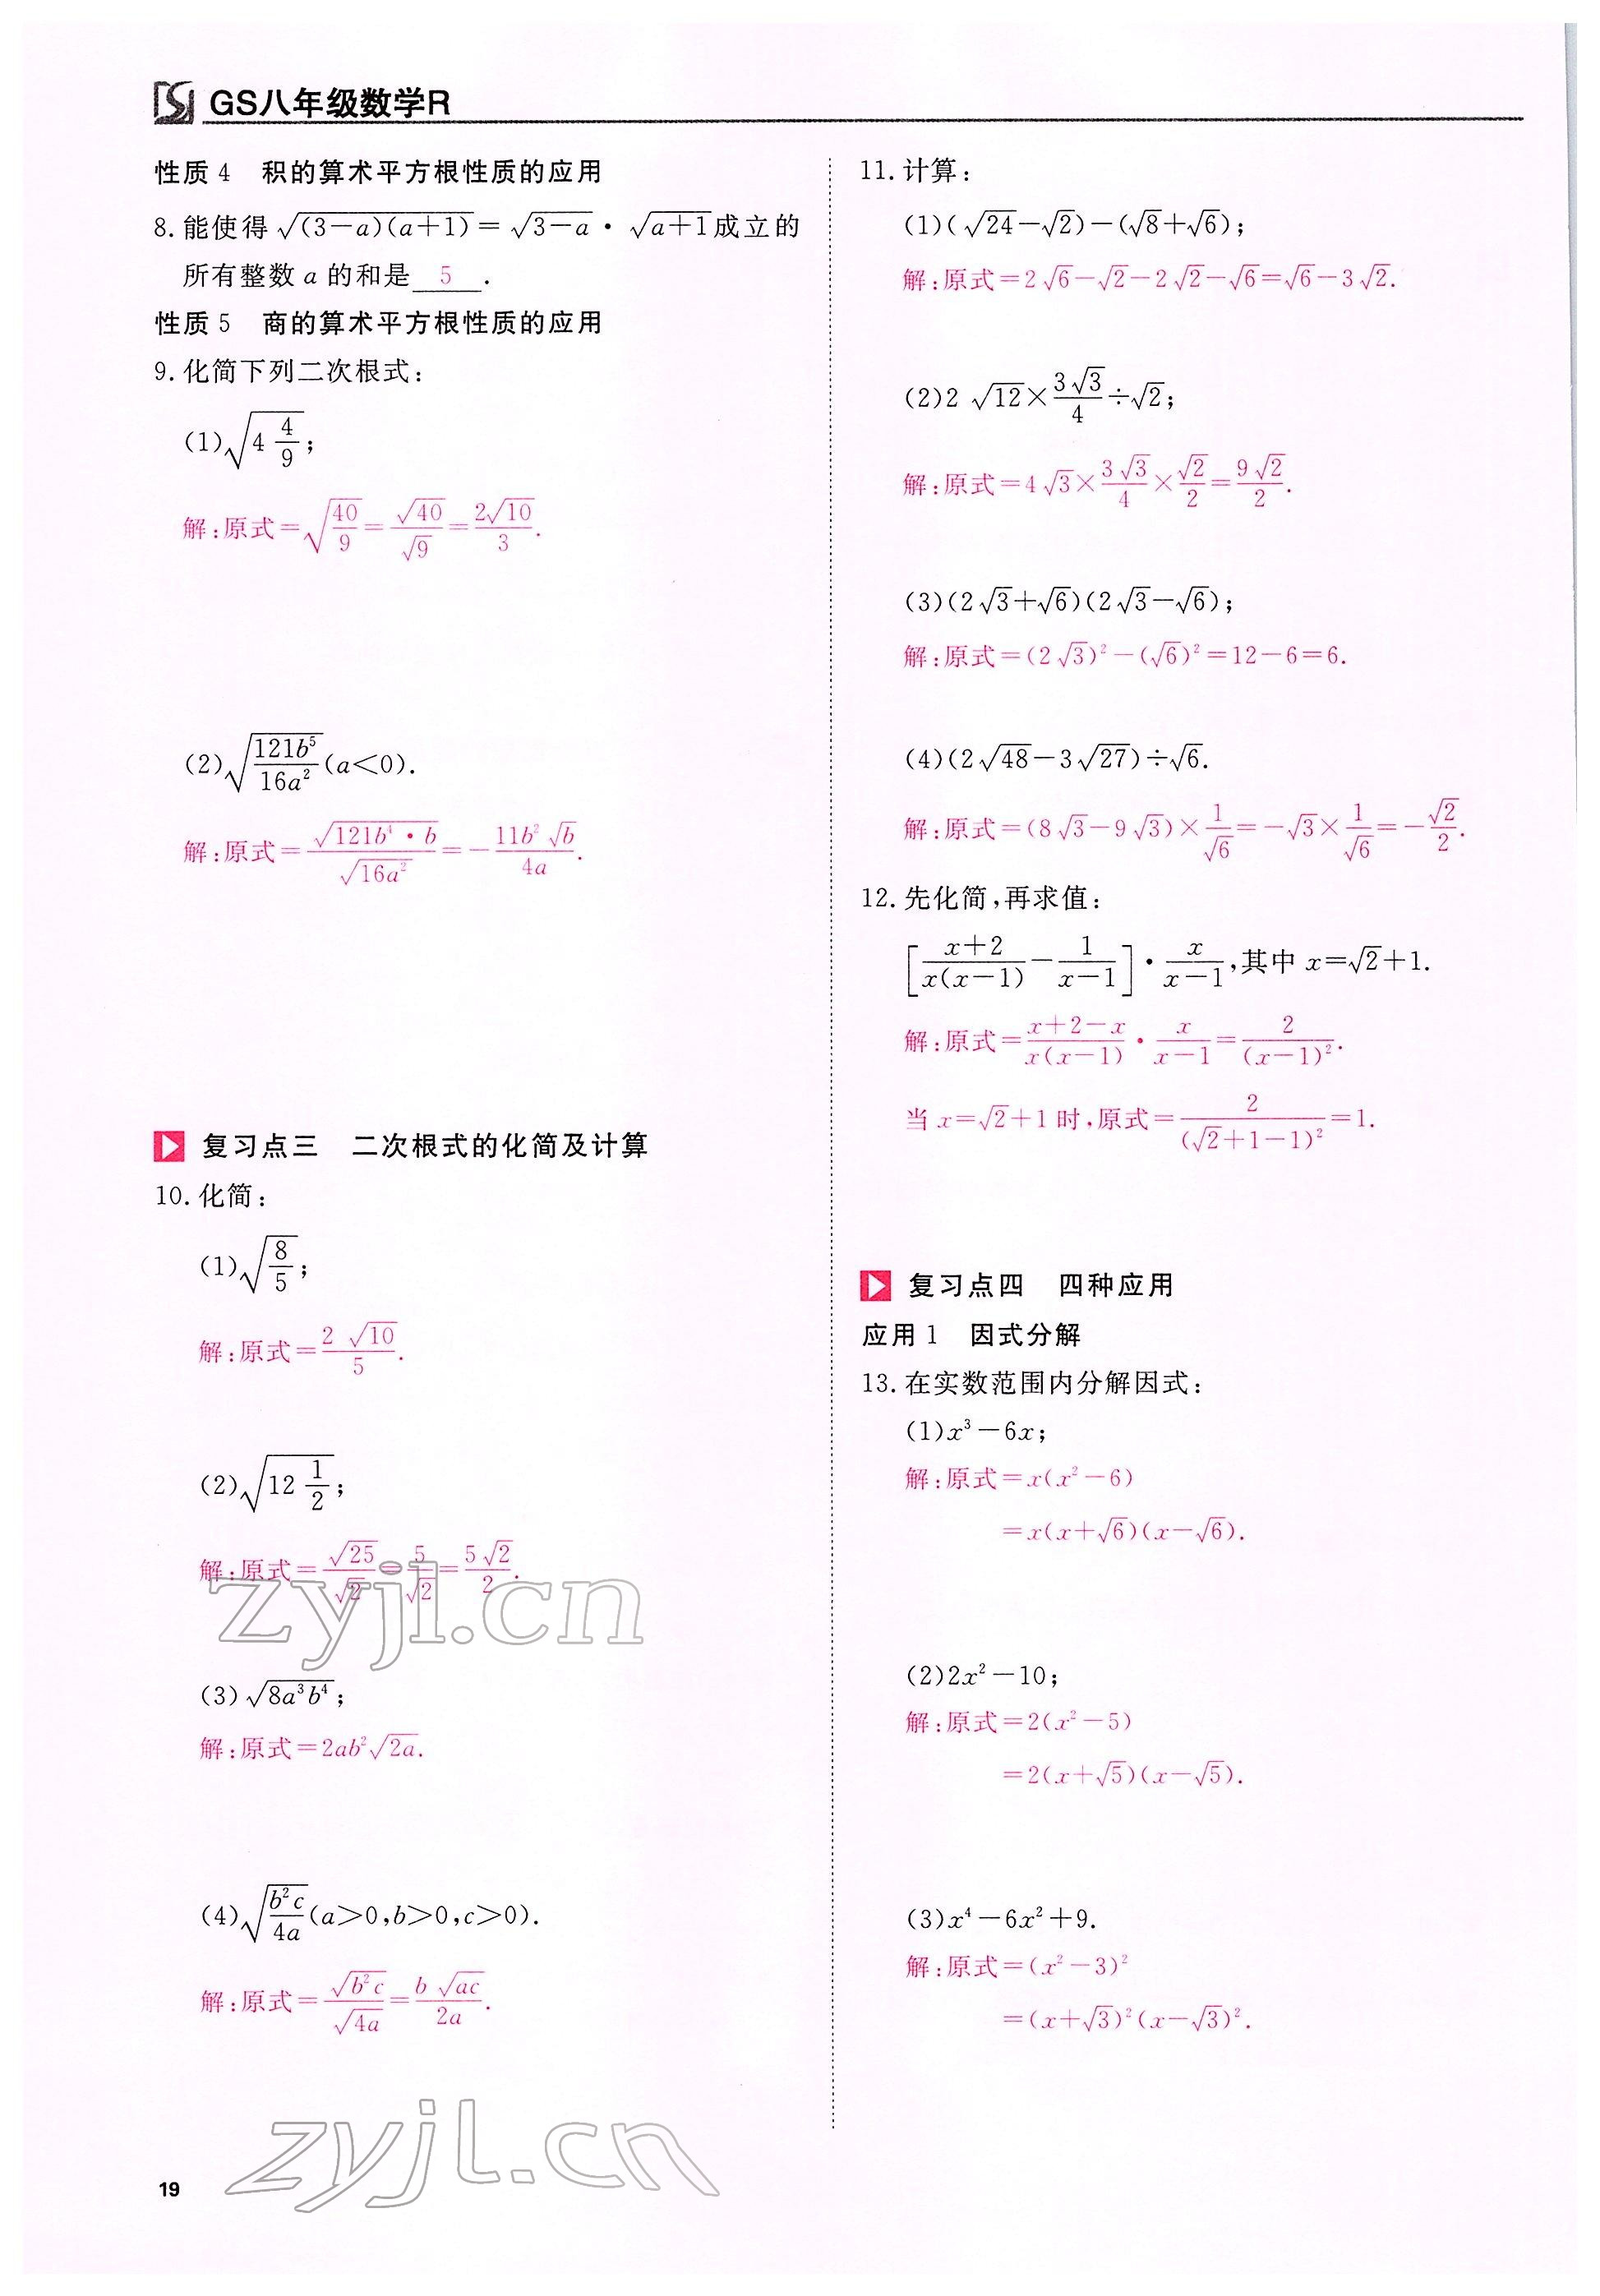 GS八年级数学R
性质4 积的算术平方根性质的应用
8.能使得√(3-a)(a+1)=√3-a·√a+1成立的
所有整数a的和是 5 .
性质5 商的算术平方根性质的应用
9.化简下列二次根式:
(1)√(4 4/9);
解:原式=√(40/9)=√40/√9=2√10/3.
(2)√(121b⁵/16a²)(a<0).
解:原式=√(121b⁴·b)/√(16a²)=-11b²√b/4a.
复习点三 二次根式的化简及计算
10.化简:
(1)√(8/5);
解:原式=2√10/5.
(2)√(12 1/2);
解:原式=√25/√2=5/√2=5√2/2.
(3)√(8a³b⁴);
解:原式=2ab²√(2a).
(4)√(b²c/4a)(a>0,b>0,c>0).
解:原式=√(b²c)/√(4a)=b√(ac)/2a.
19
11.计算:
(1)(√24-√2)-(√8+√6);
解:原式=2√6-√2-2√2-√6=√6-3√2.
(2)2√12×3√3/4÷√2;
解:原式=4√3×3√3/4×√2/2=9√2/2.
(3)(2√3+√6)(2√3-√6);
解:原式=(2√3)²-(√6)²=12-6=6.
(4)(2√48-3√27)÷√6.
解:原式=(8√3-9√3)×1/√6=-√3×1/√6=-√2/2.
12.先化简,再求值:
[(x+2)/x(x-1)-1/(x-1)]·x/(x-1),其中x=√2+1.
解:原式=(x+2-x)/x(x-1)·x/(x-1)=2/(x-1)².
当x=√2+1时,原式=2/(√2+1-1)²=1.
复习点四 四种应用
应用1 因式分解
13.在实数范围内分解因式:
(1)x³-6x;
解:原式=x(x²-6)
=x(x+√6)(x-√6).
(2)2x²-10;
解:原式=2(x²-5)
=2(x+√5)(x-√5).
(3)x⁴-6x²+9.
解:原式=(x²-3)²
=(x+√3)²(x-√3)².
zyjl.cn
zyjl.cn